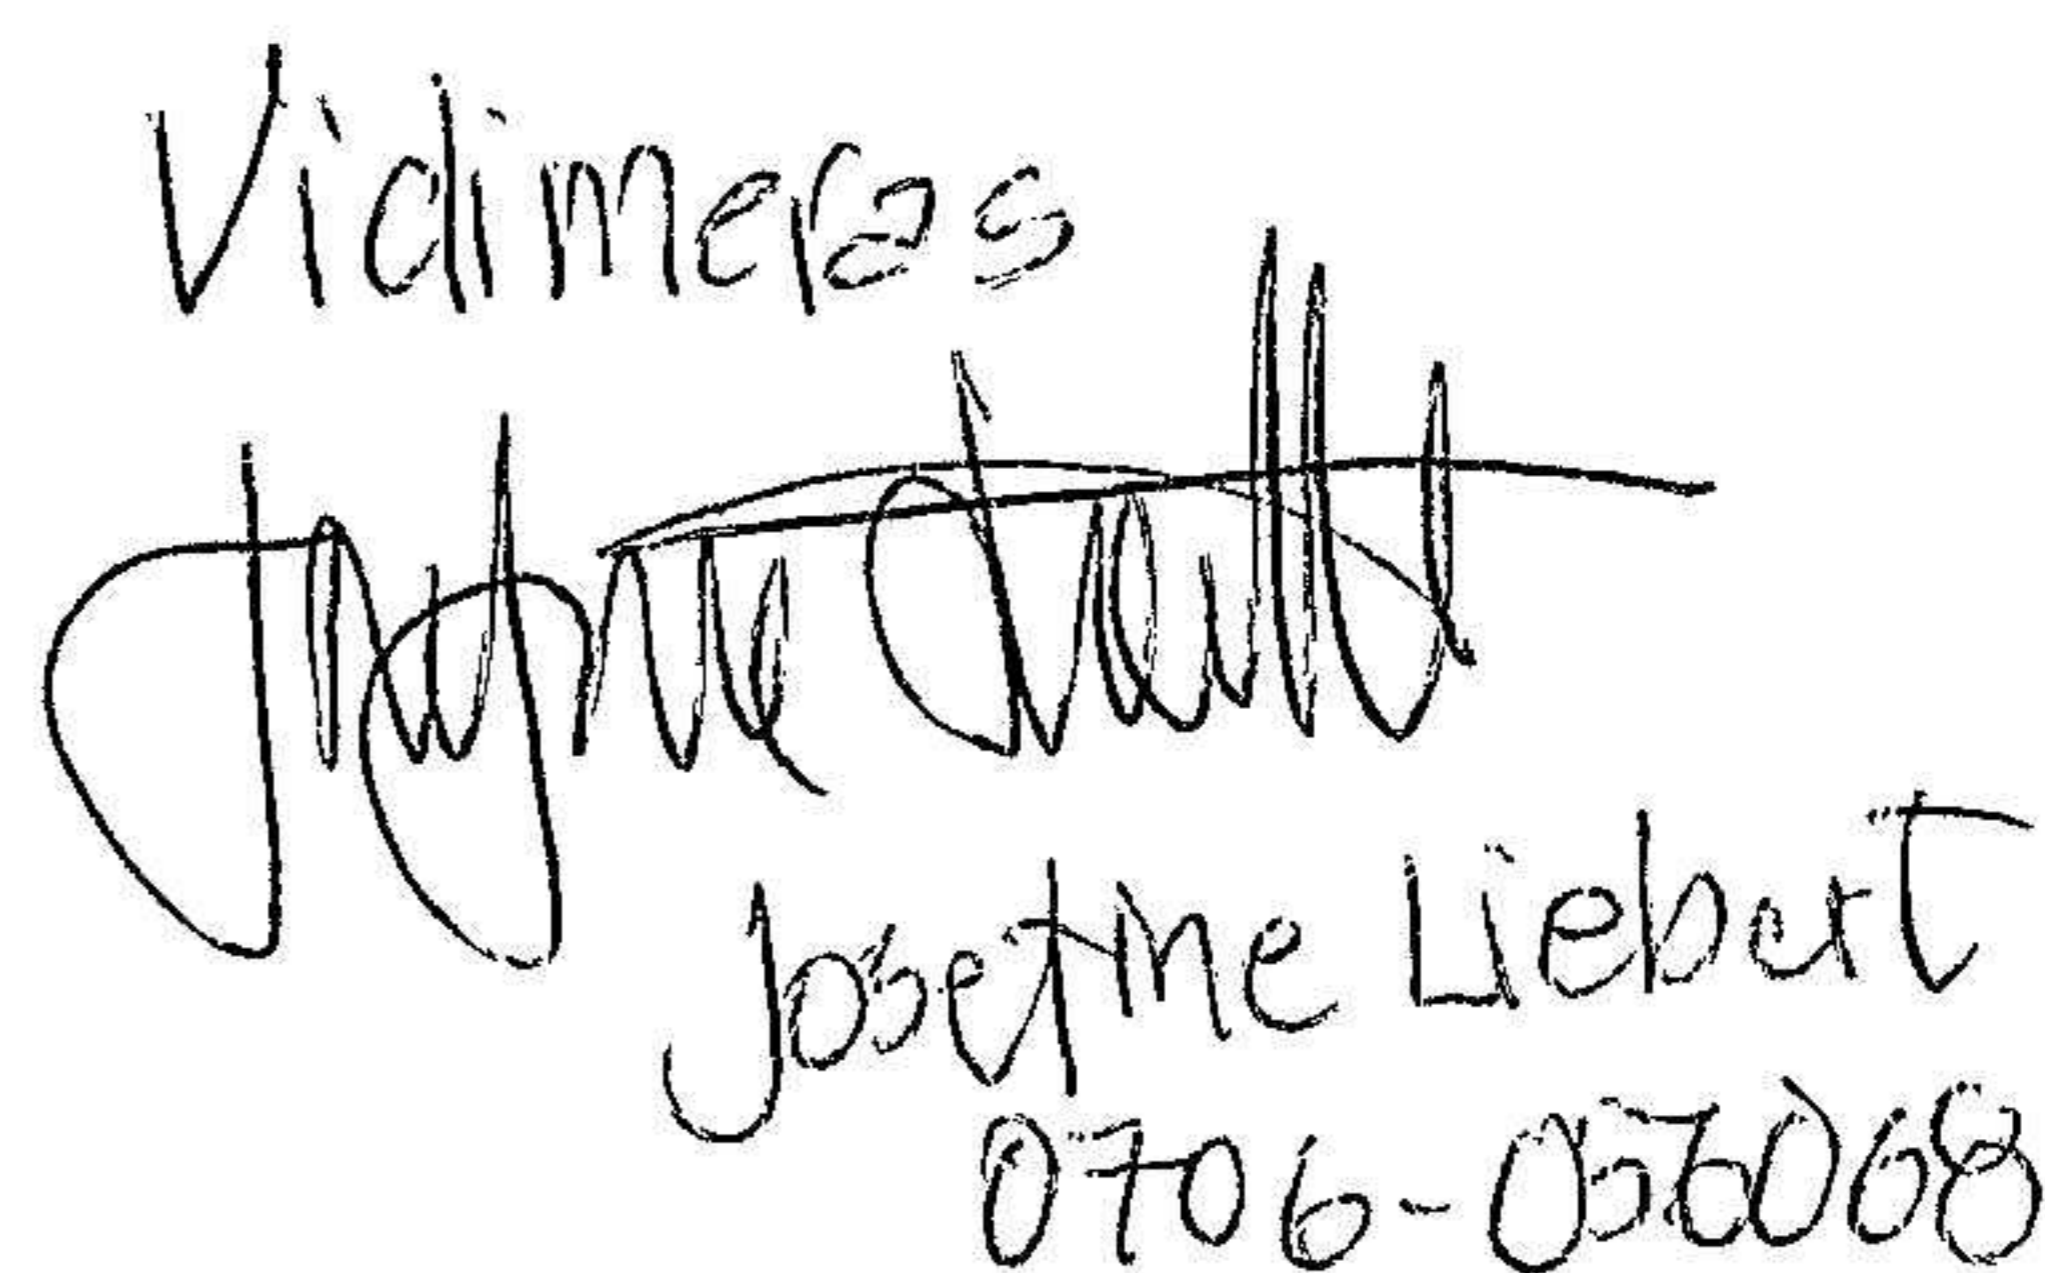 Vidimeras
Josefine Liebert
0706-056068